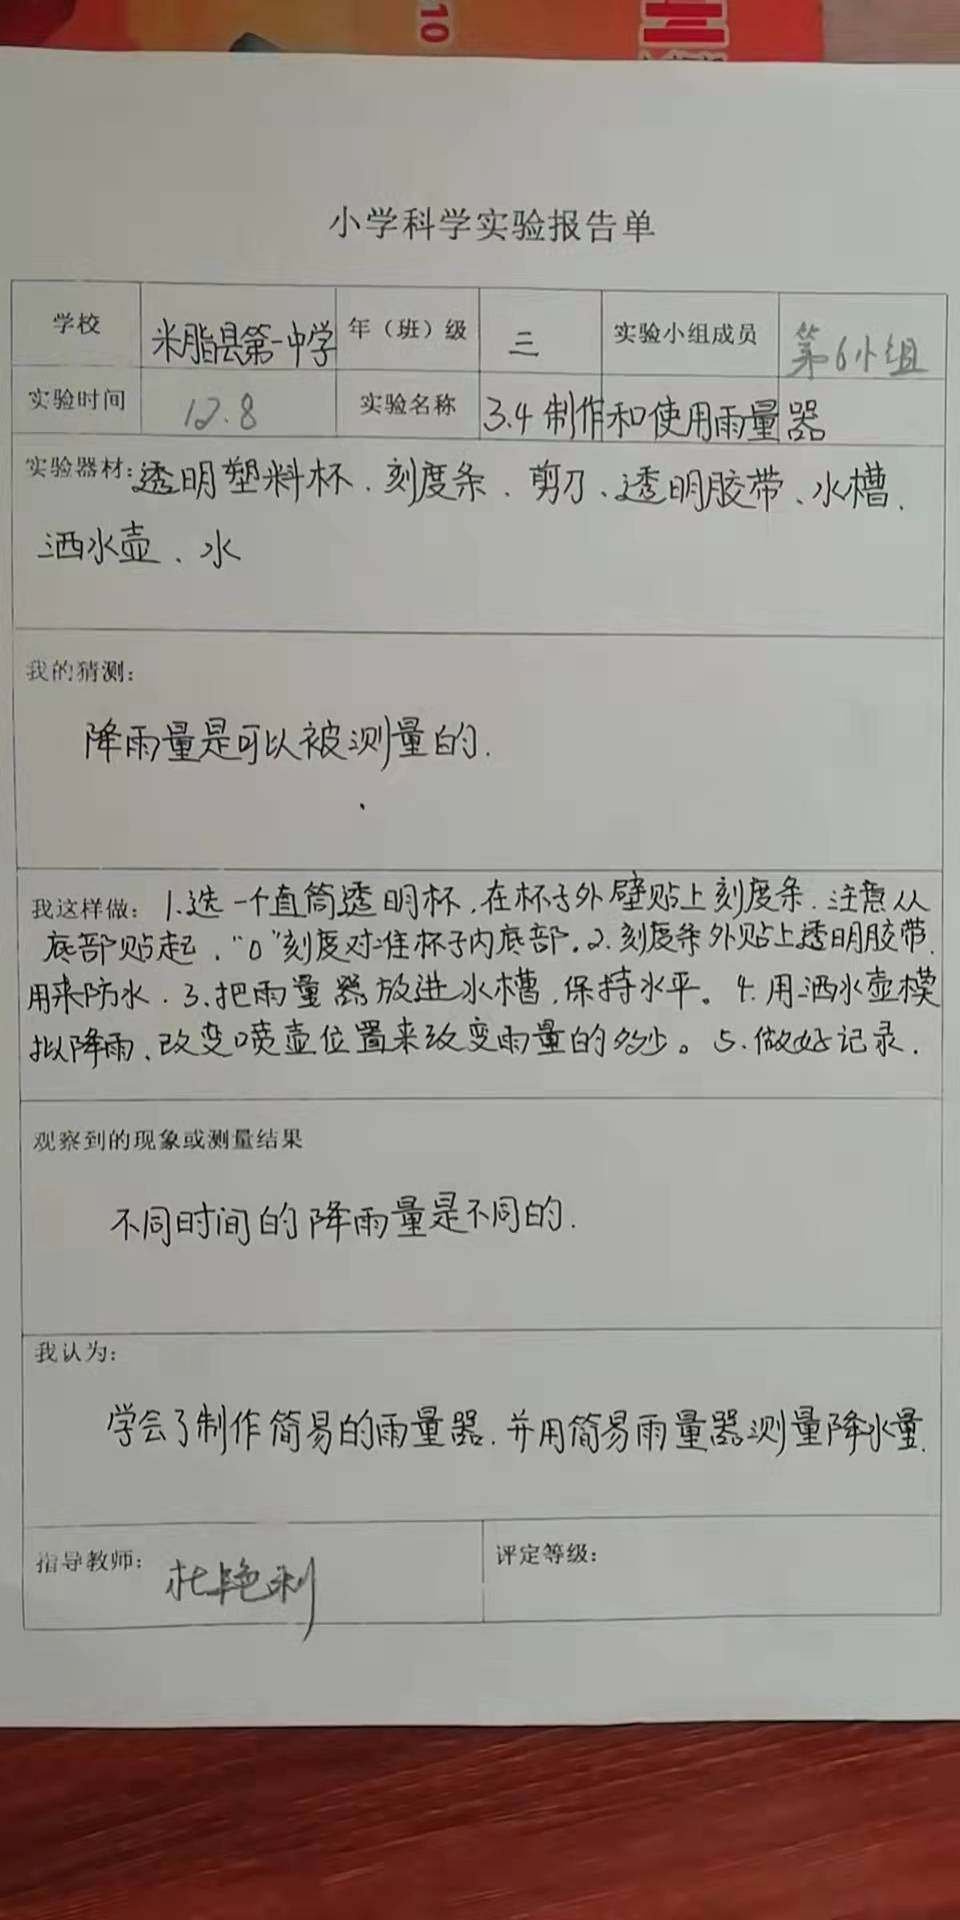 10
小学科学实验报告单
学校 米脂县第一中学 年（班）级 三 实验小组成员 第6小组
实验时间 12.8 实验名称 3.4 制作和使用雨量器
实验器材: 透明塑料杯、刻度条、剪刀、透明胶带、水槽、
洒水壶、水
我的猜测:
降雨量是可以被测量的.
我这样做: 1.选一个直筒透明杯,在杯子外壁贴上刻度条.注意从
底部贴起,“0”刻度对准杯子内底部。2.刻度条外贴上透明胶带,
用来防水.3.把雨量器放进水槽,保持水平。4.用洒水壶模
拟降雨、改变喷壶位置来改变雨量的多少。5.做好记录.
观察到的现象或测量结果
不同时间的降雨量是不同的.
我认为:
学会了制作简易的雨量器.并用简易雨量器测量降水量.
指导教师: 杜艳利 评定等级: